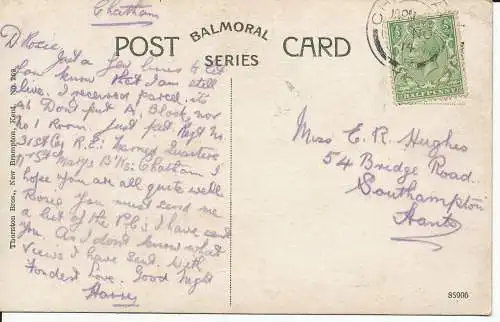 Chatham
D Rosie
Just a few lines to let
you know that I am still
alive. I received parcel. it's
Dont put A, Block, nor
No 1 Room. Just put Regt No.
31st Coy R.E: Married Quarters
St Marys B'ks: Chatham I
hope you are all quite well
Rosie you must send me
a list of the P.C's I have sent
you. As I dont know what
views I have sent. With
Fondest Love. Good Night
Harry
POST CARD
BALMORAL
SERIES
Thornton Bros., New Brompton, Kent.
Miss E. R. Hughes
54 Bridge Road
Southampton
Hants
85906